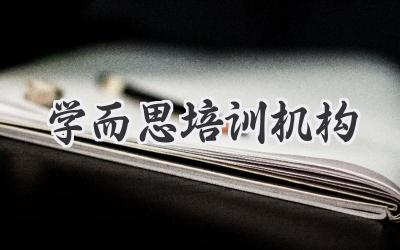 学而思培训机构